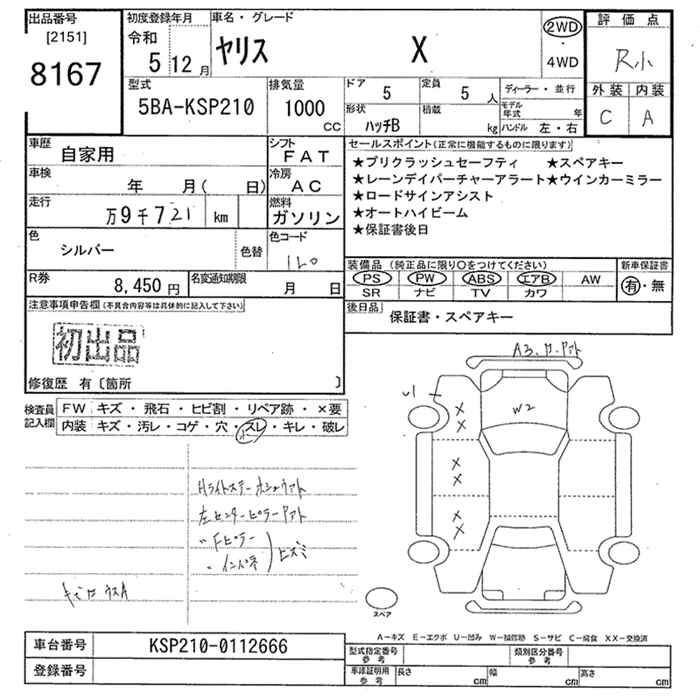 出品番号
[2151]
8167
初度登録年月
令和
5 12 月
車名・グレード
ヤリス X
2WD
・
4WD
評価点
R小
外装 内装
C A
型式
5BA-KSP210
排気量
1000
CC
ドア
5
定員
5 人
形状
ハッチB
積載
kg
ディーラー・並行
モデル年式 年
ハンドル 左・右
車歴
自家用
シフト
FAT
車検
年 月( 日)
冷房
AC
走行
万9千721 km
燃料
ガソリン
色
シルバー
色替
色コード
1L0
R券
8,450 円
名変通知期限
月 日
セールスポイント(正常に機能するものに限ります)
★プリクラッシュセーフティ ★スペアキー
★レーンデイパーチャーアラート★ウインカーミラー
★ロードサインアシスト
★オートハイビーム
★保証書後日
装備品 (純正品に限り○をつけてください)
PS PW ABS エアB AW
SR ナビ TV カワ
新車保証書
有・無
後日品
保証書・スペアキー
注意事項申告欄(不具合内容等は具体的に記入して下さい)
初出品
修復歴 有〔箇所 〕
検査員記入欄
FW キズ・飛石・ヒビ割・リペア跡・×要
内装 キズ・汚レ・コゲ・穴・スレ・キレ・破レ
左センターピラーアト
〃 Fピラー
ヒズミ
U1
W2
スペア
A-キズ E-エクボ U-凹み W-補修跡 S-サビ C-腐食 XX-交換済
車台番号
KSP210-0112666
登録番号
型式指定番号
参考
類別区分番号
参考
車庫証明用
参考
長さ cm 幅 cm 高さ cm